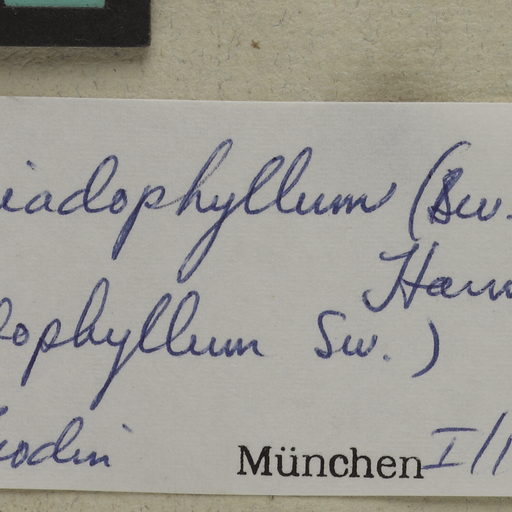 iadophyllum (Sw.
Haw
ophyllum Sw.)
rodin
München I/1